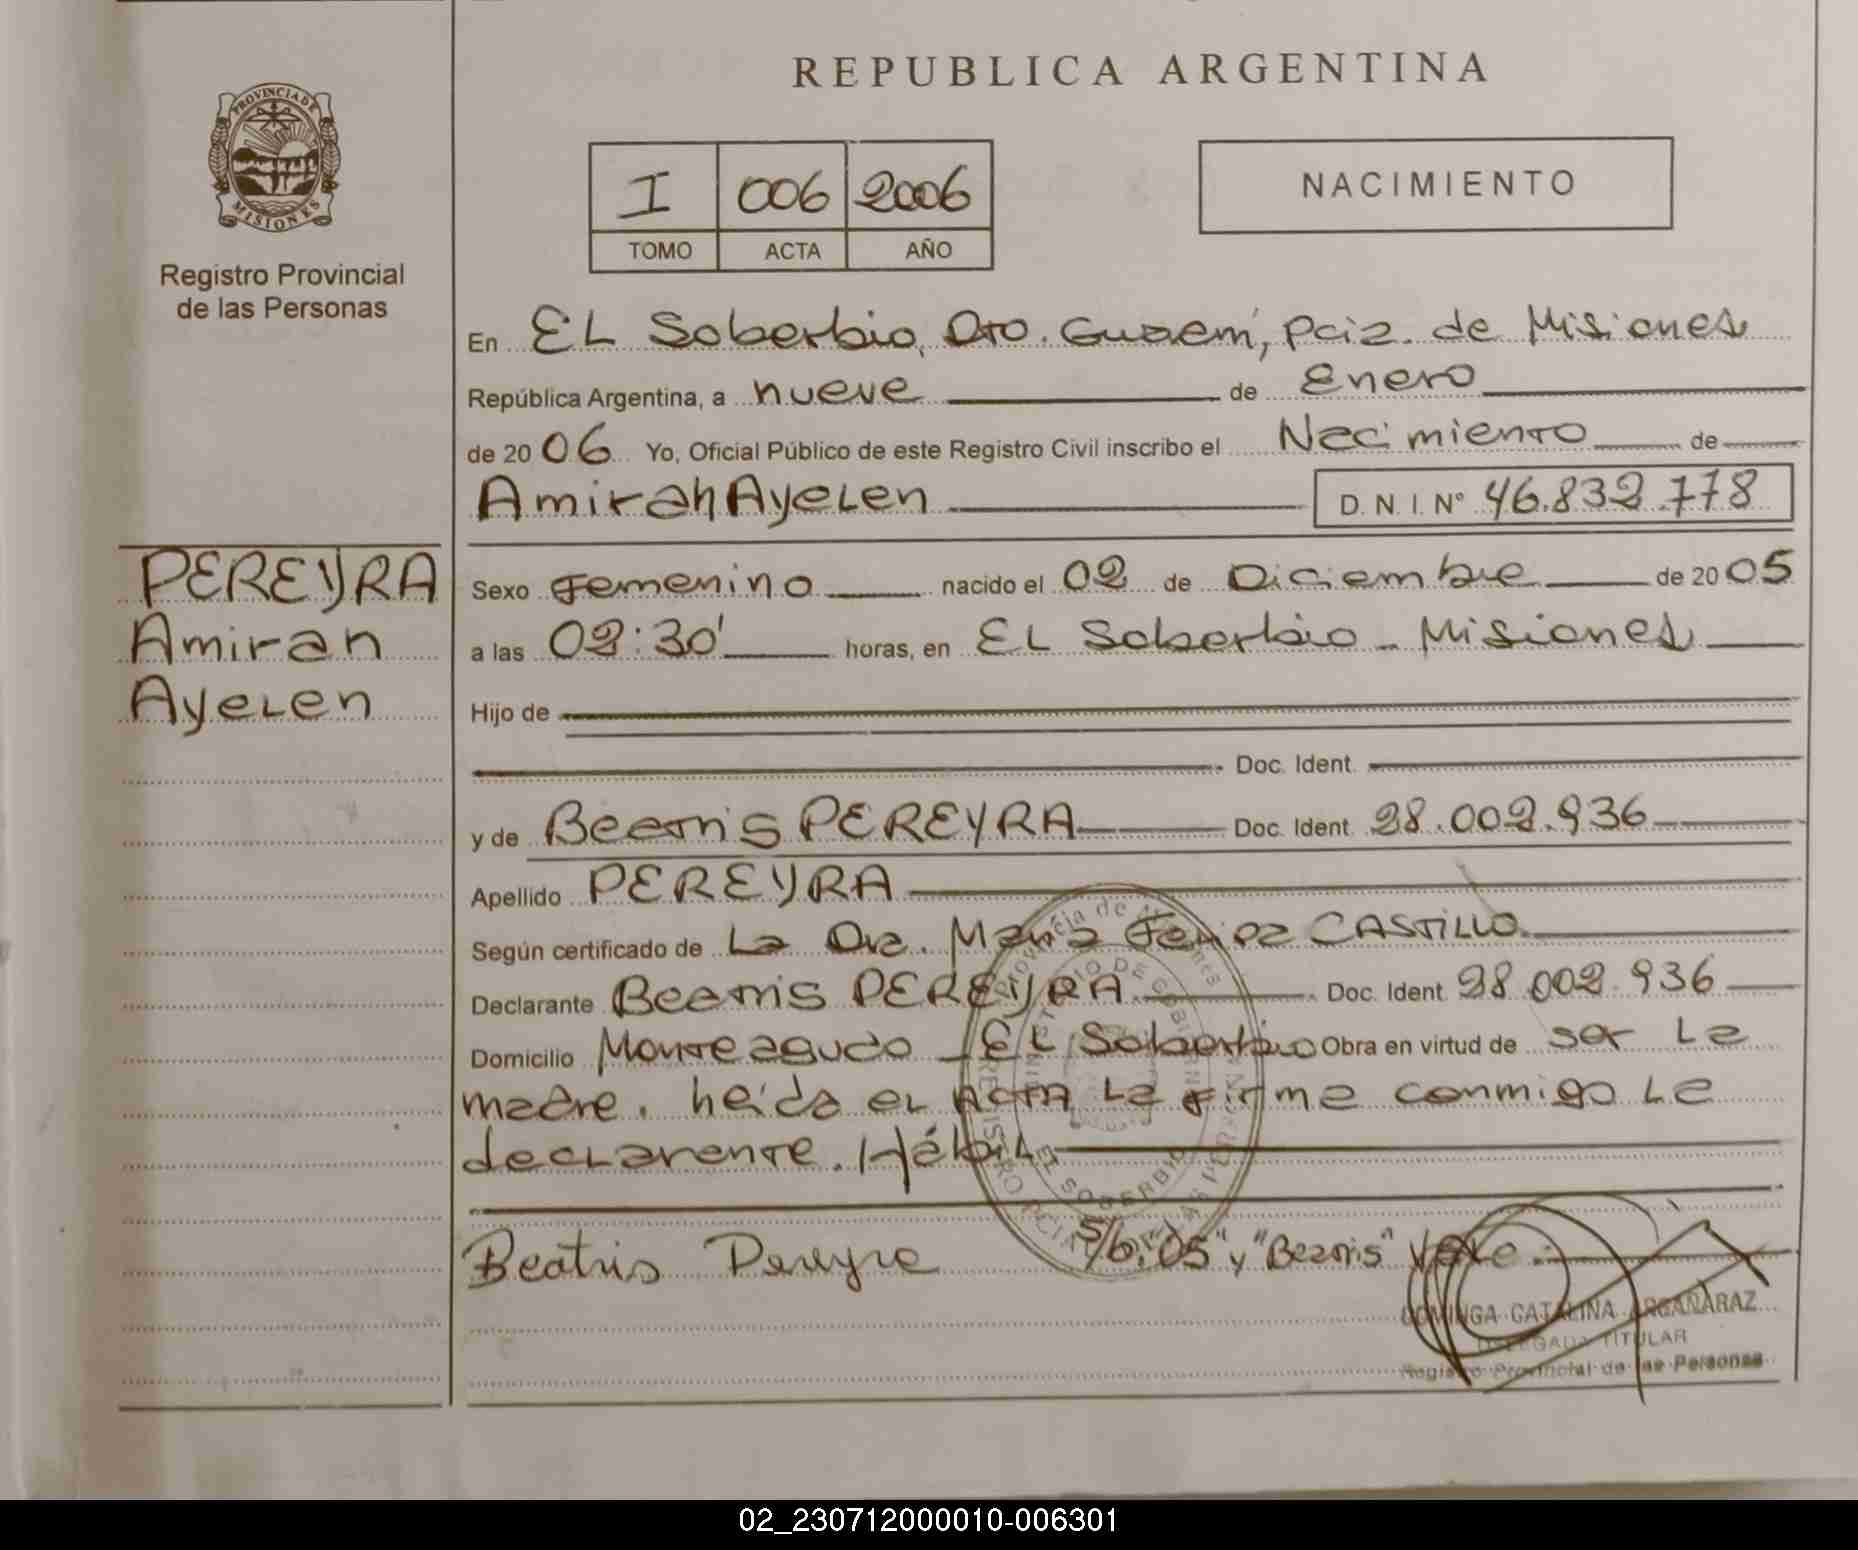 REPUBLICA ARGENTINA
PROVINCIA DE
MISIONES
Registro Provincial
de las Personas
I 006 2006
TOMO ACTA AÑO
NACIMIENTO
En EL Soberbio, Dto. Guaraní, Pcia. de Misiones
República Argentina, a nueve de Enero
de 2006 Yo, Oficial Público de este Registro Civil inscribo el Nacimiento de
Amirah Ayelen D. N. I. N° 46.832.778
PEREYRA
Amirah
Ayelen
Sexo Femenino nacido el 02 de Diciembre de 2005
a las 02:30' horas, en EL Soberbio - Misiones
Hijo de
Doc. Ident.
y de Beatris PEREYRA Doc. Ident. 28.002.936
Apellido PEREYRA
Según certificado de La Dra. María CASTILLO
Declarante Beatris PEREYRA Doc. Ident. 28.002.936
Domicilio Monteagudo - EL Soberbio Obra en virtud de ser La
madre. Leída el Acta La firma conmigo La
declarante. Hábil
Beatris Pereyra S/b: "05" y "Beatris" Vale.
DOMINGA CATALINA ARGAÑARAZ
DELEGADA TITULAR
Registro Provincial de las Personas
02_230712000010-006301